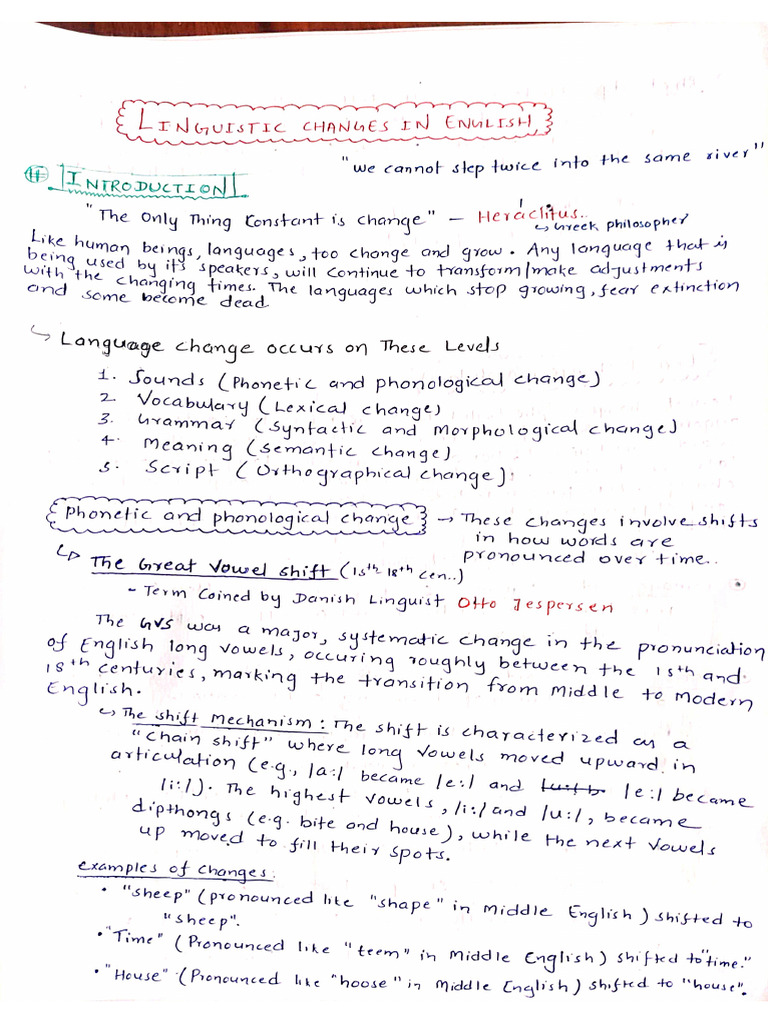 LINGUISTIC CHANGES IN ENGLISH
"we cannot step twice into the same river"
INTRODUCTION
"The Only Thing Constant is change" – Heraclitus..
↳ Greek philosopher
Like human beings, languages, too change and grow. Any language that is
being used by its speakers, will continue to transform/make adjustments
with the changing times. The languages which stop growing, fear extinction
and some become dead
↳ Language change occurs on These Levels
1. Sounds (Phonetic and phonological change)
2 Vocabulary (Lexical change)
3. Grammar (Syntactic and Morphological change)
4. Meaning (Semantic change)
5. Script (Orthographical change).
Phonetic and phonological change → These changes involve shifts
in how words are
pronounced over time..
↳ The Great Vowel shift (15th 18th cen..)
- Term Coined by Danish Linguist Otto Jespersen
The GVS was a major, systematic change in the pronunciation
of English long vowels, occuring roughly between the 15th and
18th centuries, marking the transition from Middle to Modern
English.
↳ The shift Mechanism: The shift is characterized as a
"Chain shift" where long vowels moved upward in
articulation (e.g., /a:/ became /e:/ and /e:/ became
/i:/). The highest vowels, /i:/ and /u:/, became
dipthongs (e.g. bite and house), while the next vowels
up moved to fill their spots.
examples of changes:
• "sheep" (pronounced like "shape" in Middle English) shifted to
"sheep".
• "Time" (Pronounced like "teem" in Middle English) shifted to "time."
• "House" (Pronounced like "hoose" in Middle English) shifted to "house".